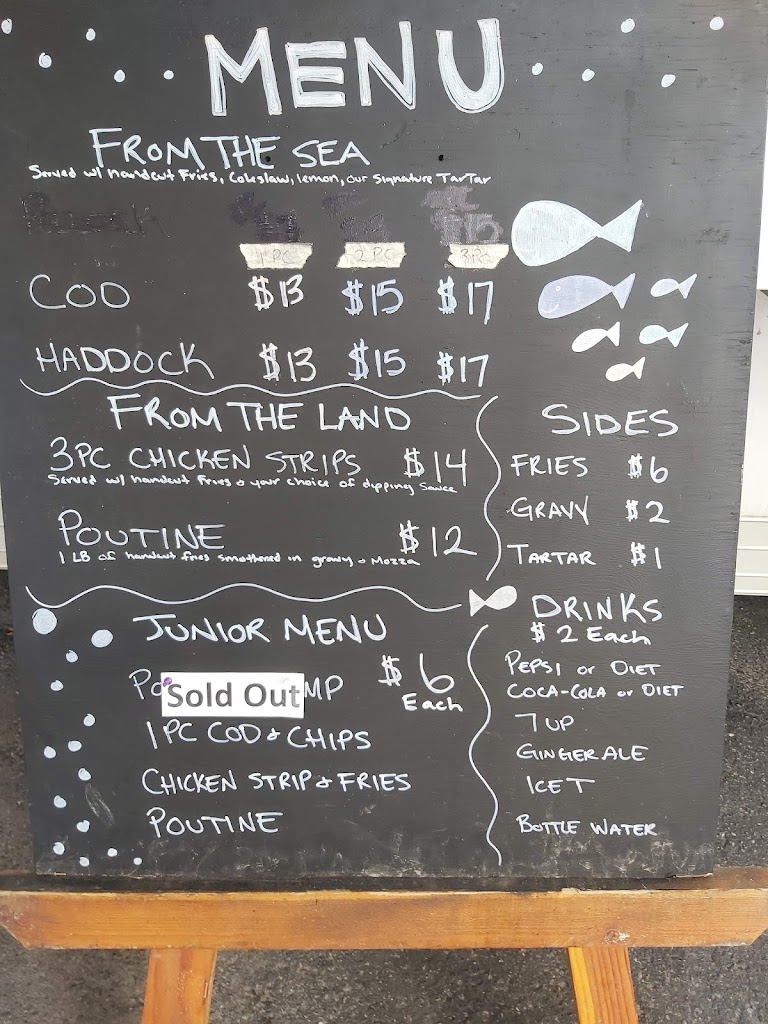 MENU
FROM THE SEA
Served w/ handcut Fries, Coleslaw, lemon, our Signature TarTar
1 PC 2 PC 3 PC
COD $13 $15 $17
HADDOCK $13 $15 $17
FROM THE LAND
3PC CHICKEN STRIPS $14
Served w/ handcut Fries & your choice of dipping Sauce
POUTINE $12
1 LB of handcut fries smothered in gravy & Mozza
SIDES
FRIES $6
GRAVY $2
TARTAR $1
JUNIOR MENU
$6 Each
Po Sold Out MP
1 PC COD & CHIPS
CHICKEN STRIP & FRIES
POUTINE
DRINKS
$2 Each
PEPSI or DIET
COCA-COLA or DIET
7 UP
GINGERALE
ICE T
BOTTLE WATER